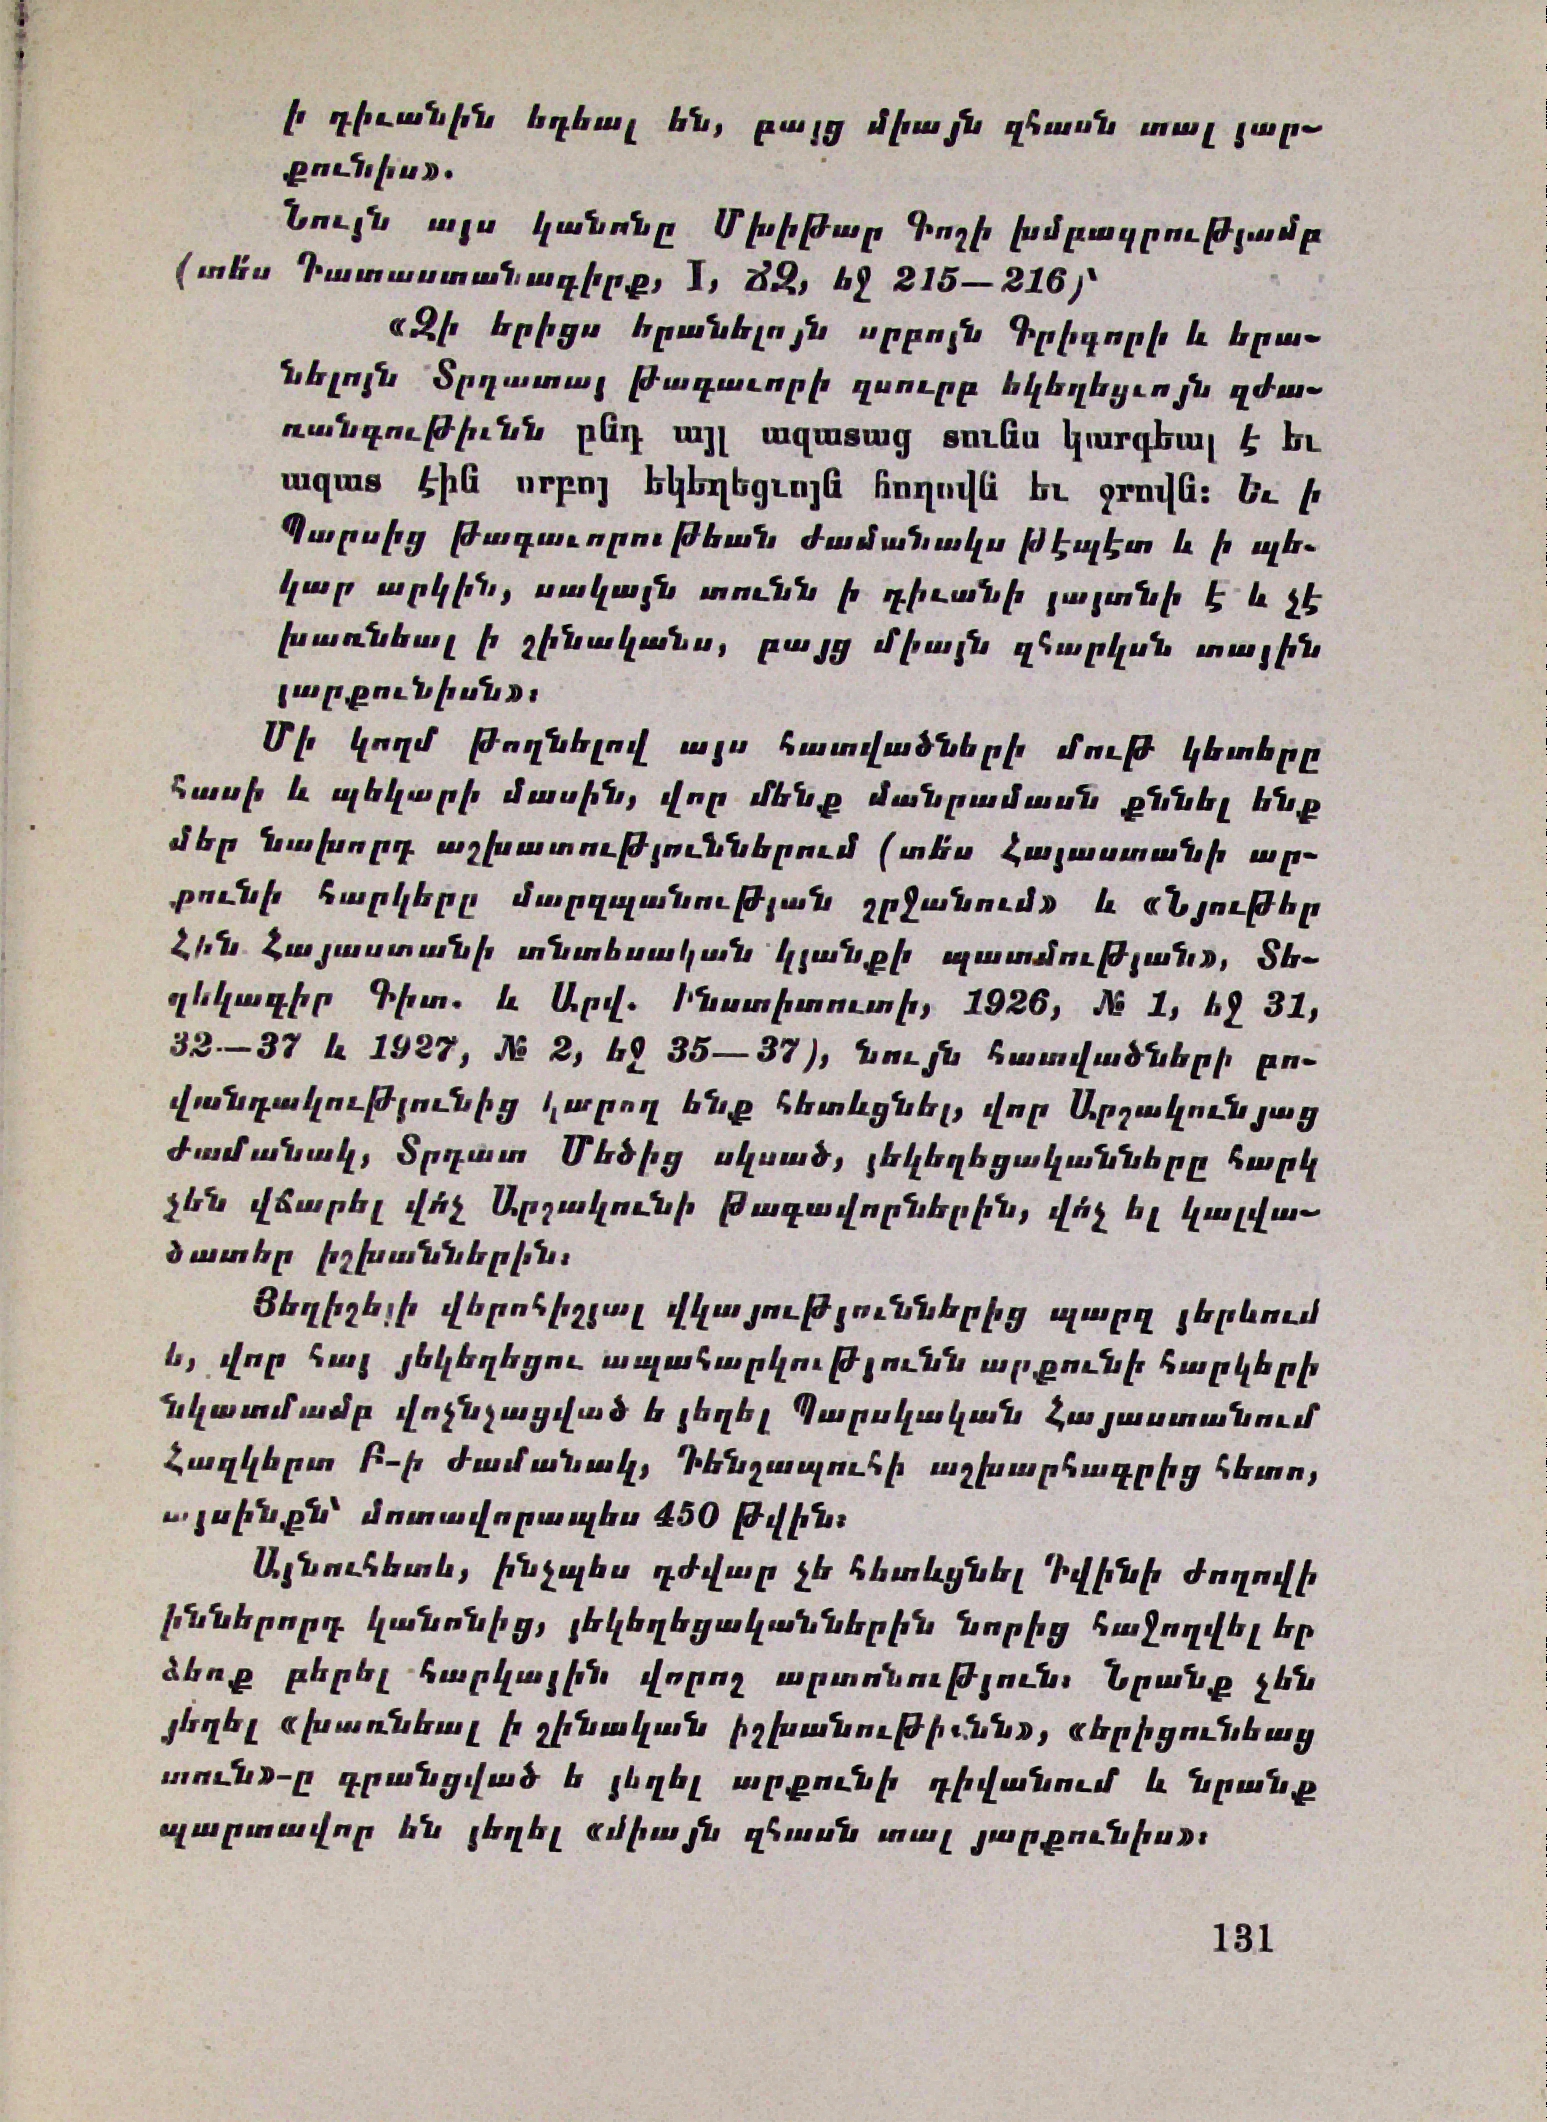 ի դիւանին եդեալ են, բայց միայն զհասն տալ յար-
քունիս».
Նույն այս կանոնը Մխիթար Գոշի խմբագրությամբ
(տե՛ս Դատաստանագիրք, I, ՃԶ, եջ 215—216)՝
«Զի երիցս երանելոյն սրբոյն Գրիգորի և երա-
նելոյն Տրդատայ թագաւորի զսուրբ եկեղեցւոյն զժա-
ռանգութիւնն ընդ այլ ազատաց տունս կարգեալ է եւ
ազատ էին սրբոյ եկեղեցւոյն հողովն եւ ջրովն: Եւ ի
Պարսից թագաւորութեան ժամանակս թէպէտ և ի պե-
կար արկին, սակայն տունն ի դիւանի յայտնի է և չէ
խառնեալ ի շինականս, բայց միայն զհարկսն տային
յարքունիսն»։
Մի կողմ թողնելով այս հատվածների մութ կետերը
հասի և պեկարի մասին, վոր մենք մանրամասն քննել ենք
մեր նախորդ աշխատություններում (տե՛ս Հայաստանի ար-
քունի հարկերը մարզպանության շրջանում» և «Նյութեր
Հին Հայաստանի տնտեսական կյանքի պատմության», Տե-
ղեկագիր Գիտ. և Արվ. Ինստիտուտի, 1926, № 1, եջ 31,
32—37 և 1927, № 2, եջ 35—37), նույն հատվածների բո-
վանդակությունից կարող ենք հետևցնել, վոր Արշակունյաց
ժամանակ, Տրդատ Մեծից սկսած, յեկեղեցականները հարկ
չեն վճարել վո՛չ Արշակունի թագավորներին, վո՛չ ել կալվա-
ծատեր իշխաններին։
Յեղիշեյի վերոհիշյալ վկայություններից պարզ յերևում
ե, վոր հայ յեկեղեցու ապահարկությունն արքունի հարկերի
նկատմամբ վոչնչացված ե յեղել Պարսկական Հայաստանում
Հազկերտ Բ-ի ժամանակ, Դենշապուհի աշխարհագրից հետո,
այսինքն՝ մոտավորապես 450 թվին։
Այնուհետև, ինչպես դժվար չե հետևցնել Դվինի ժողովի
իններորդ կանոնից, յեկեղեցականներին նորից հաջողվել եր
ձեռք բերել հարկային վորոշ արտոնություն։ Նրանք չեն
յեղել «խառնեալ ի շինական իշխանութիւնն», «երիցունեաց
տուն»-ը գրանցված ե յեղել արքունի դիվանում և նրանք
պարտավոր են յեղել «միայն զհասն տալ յարքունիս»։
131